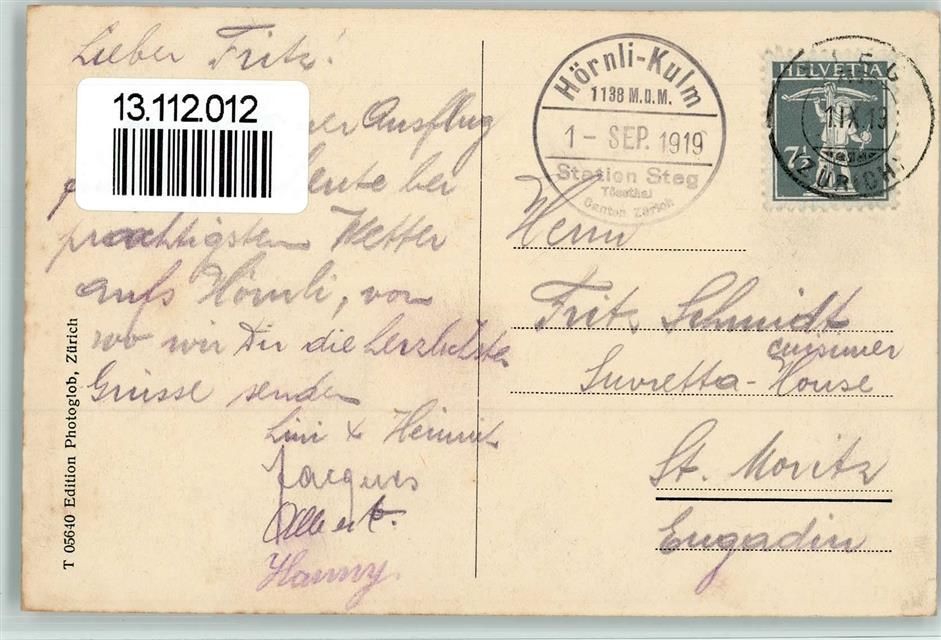 Lieber Fritz!
13.112.012
Ausflug
heute bei
prachtigstem Wetter
aufs Hörnli, von
wo wir Dir die herzlichsten
Grüsse senden
Lini & Heinrich
Jacques
Albert.
Hanny.
T 05640 Edition Photoglob, Zürich
Hörnli-Kulm
1138 M.ü.M.
1 - SEP. 1919
Station Steg
Tösstal
Canton Zürich
HELVETIA
7½
STEG
1.IX.19
(ZÜRICH)
Herrn
Fritz Schmidt
cuisinier
Suvretta-House
St. Moritz
Engadin